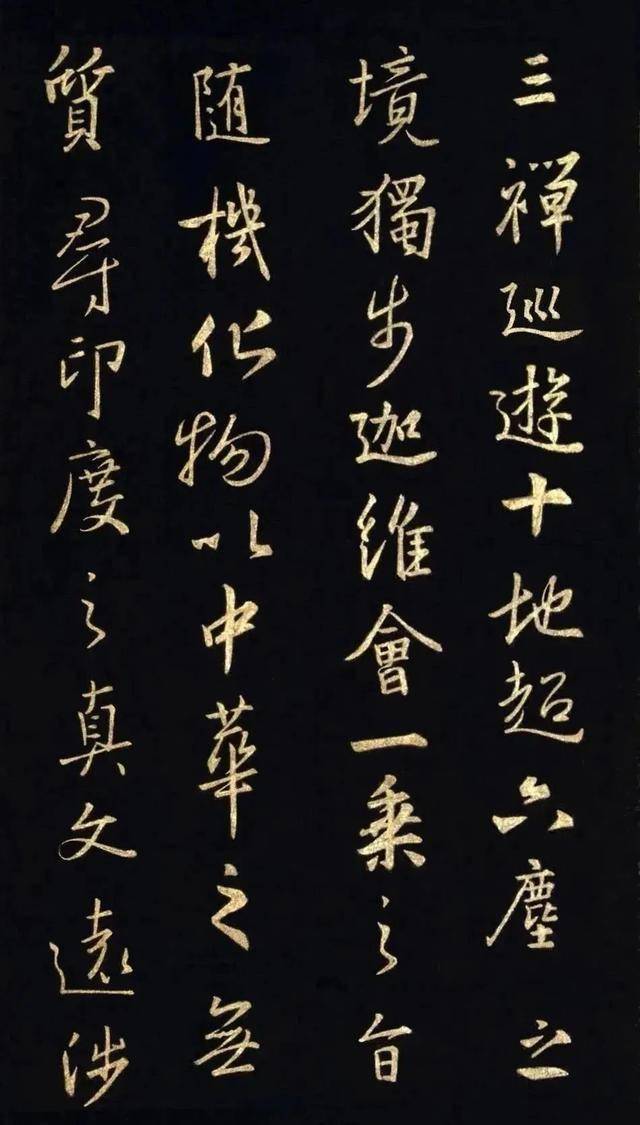 三禪巡遊十地超六塵之
境獨步迦維會一乗之旨
随機化物以中華之無
質尋印度之真文遠涉